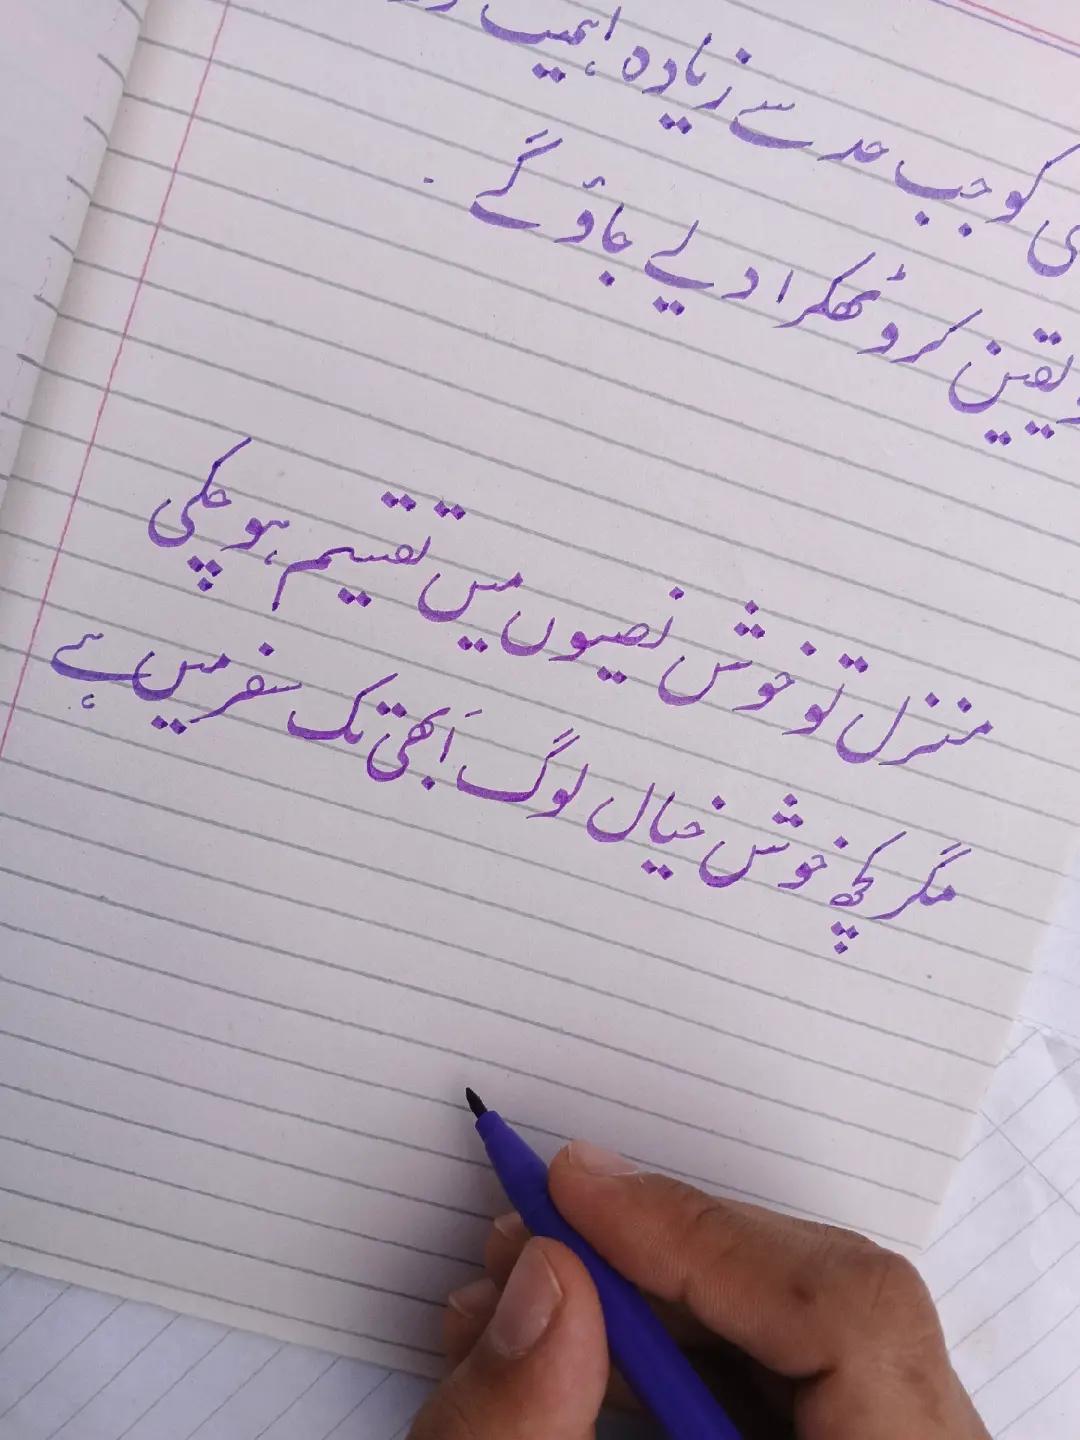 زیادہ اہمیت
کو جب حد سے
یقین کرو ٹھکرا دیے جاؤ گے .
منزل تو خوش نصیبوں میں تقسیم ہو چکی
مگر کچھ خوش خیال لوگ اَبھی تک سفر میں ہے